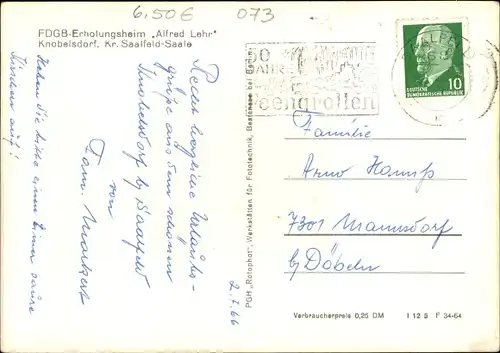 6.50€ 073
FDGB-Erholungsheim „Alfred Lehr"
Knobelsdorf, Kr. Saalfeld-Saale
Recht herzliche Urlaubs-
grüße aus dem schönen
Knobelsdorf by Saalfeld
von
Fam. Markert
2.7.66
Haben Sie bitte einen Eimer saure
auf!
PGH „Rotophot"-Werkstätten für Fototechnik, Bestensee bei Berlin
50
JAHRE
Feengrotten
10
DEUTSCHE
DEMOKRATISCHE REPUBLIK
Familie
Arno
7301 Mannsdorf
by Döbeln
Verbraucherpreis 0,25 DM I 12 5 F 34-64